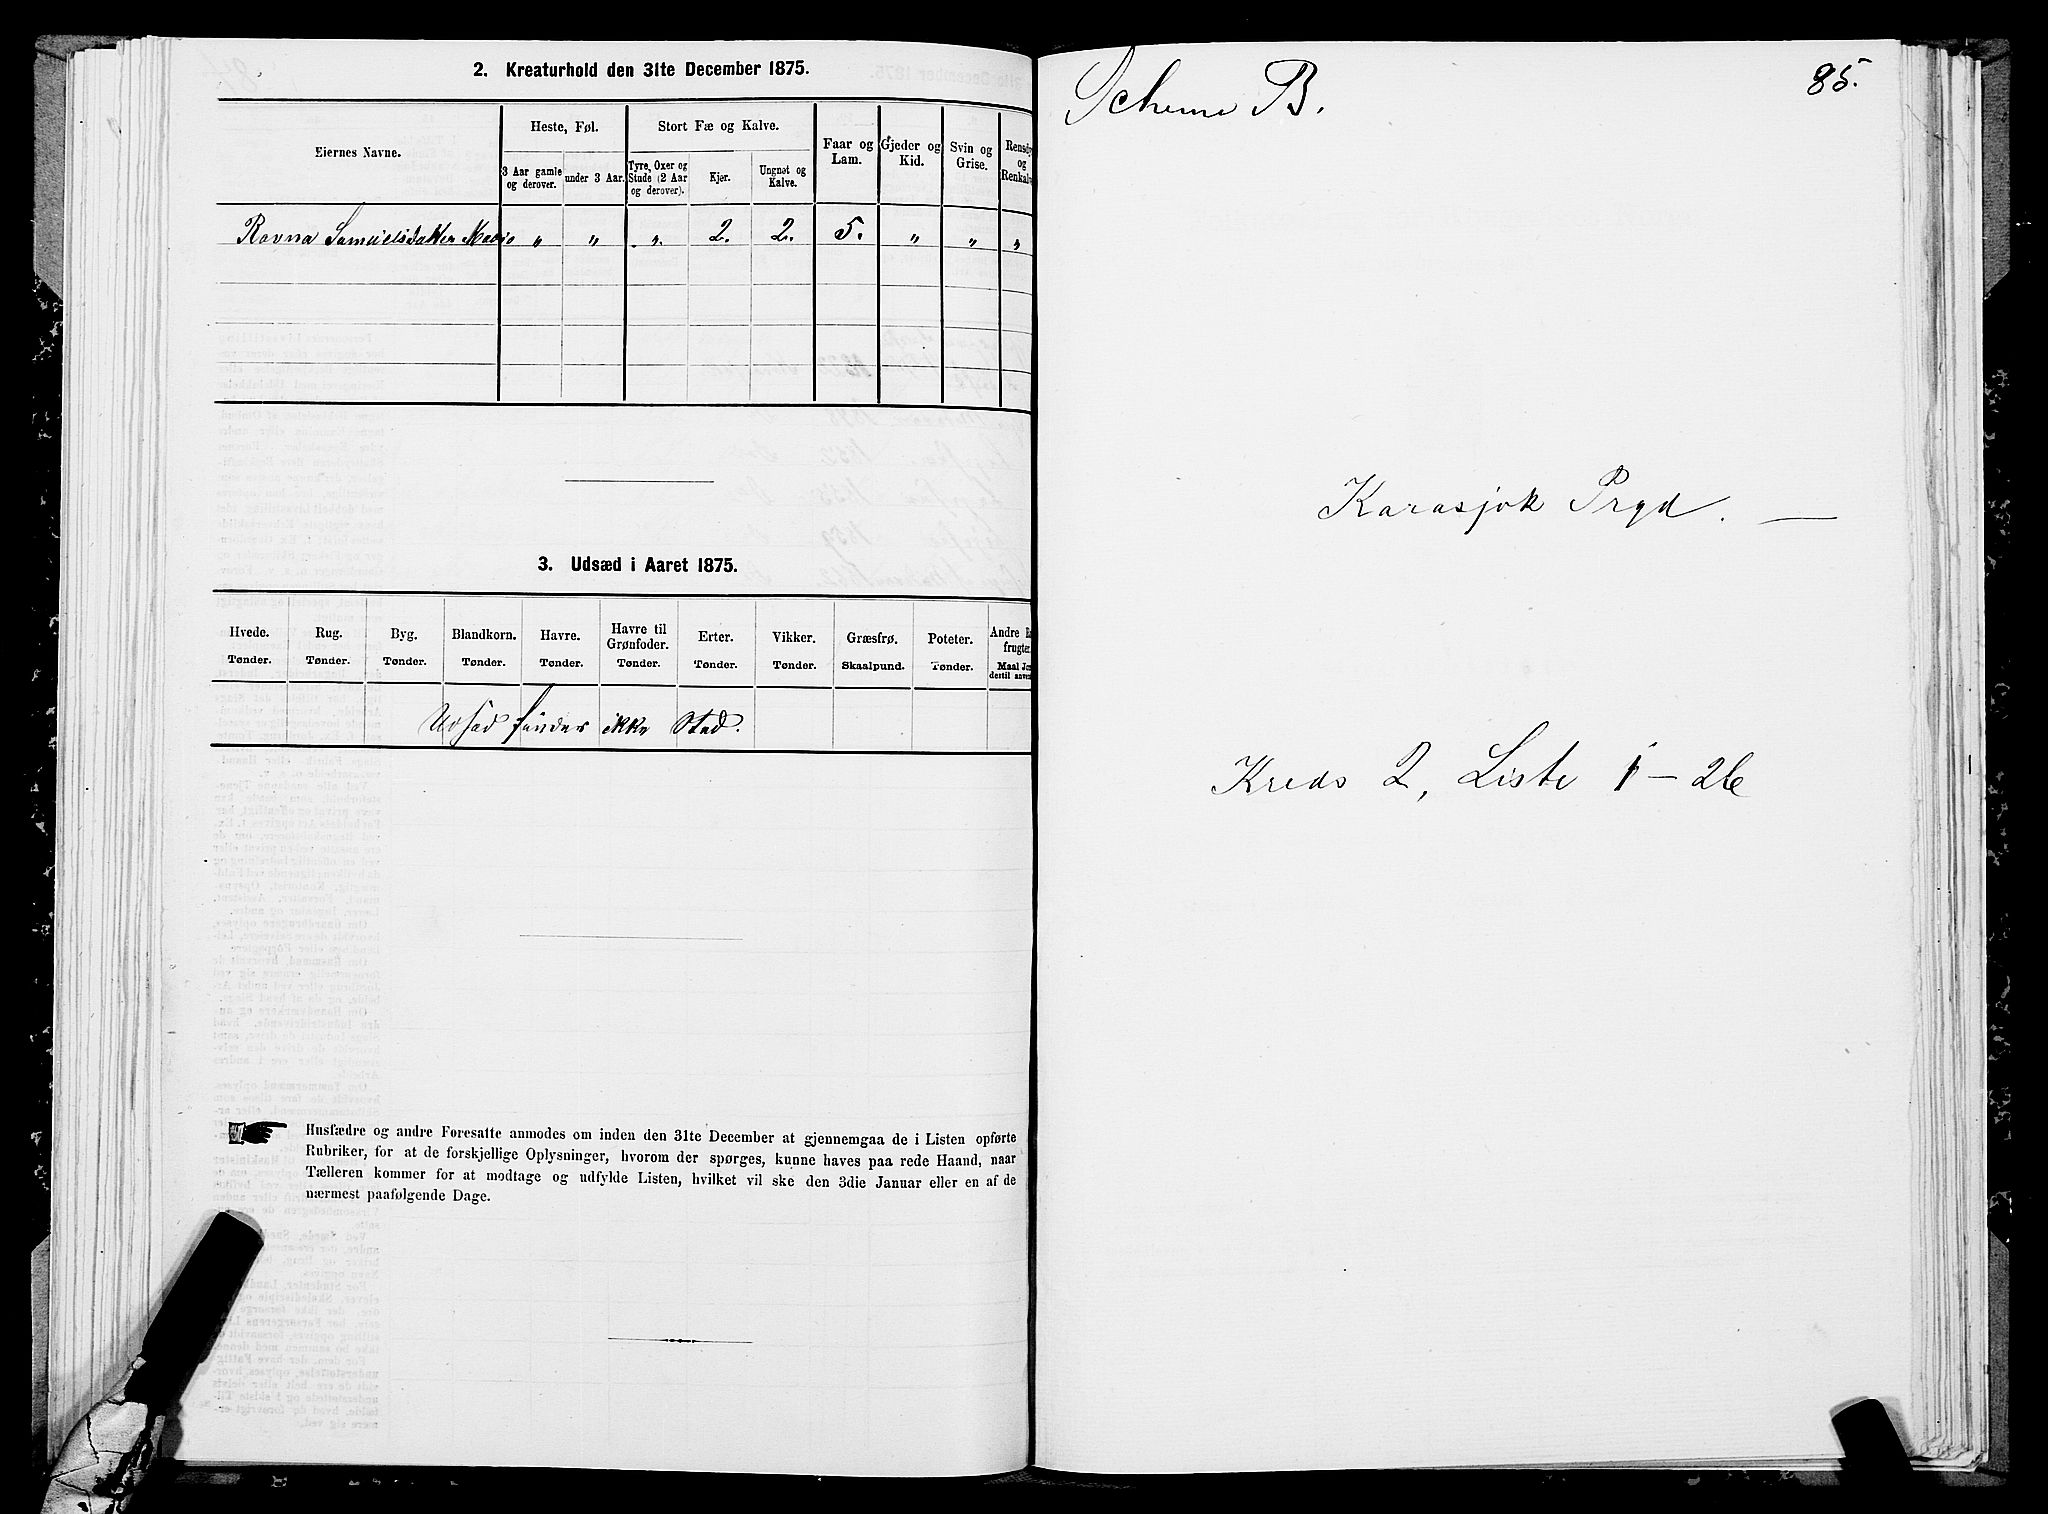 2. Kreaturhold den 31te December 1875.
Eiernes Navne.
Heste, Føl.
Stort Fæ og Kalve.
Faar og Lam.
Gjeder og Kid.
Svin og Grise.
3 Aar gamle og derover.
under 3 Aar.
Tyre, Oxer og Stude (2 Aar og derover).
Kjør.
Ungnøt og Kalve.
Ravna Samuelsdatter „ „ „ 2. 2. 5. „ „ „
3. Udsæd i Aaret 1875.
Hvede. Rug. Byg. Blandkorn. Havre. Havre til Grønfoder. Erter. Vikker. Græsfrø. Poteter. Andre
Tønder. Tønder. Tønder. Tønder. Tønder. Tønder. Tønder. Tønder. Skaalpund. Tønder. Maal
Udsæd finder ikke Sted.
Husfædre og andre Foresatte anmodes om inden den 31te December at gjennemgaa de i Listen opførte
Rubriker, for at de forskjellige Oplysninger, hvorom der spørges, kunne haves paa rede Haand, naar
Tælleren kommer for at modtage og udfylde Listen, hvilket vil ske den 3die Januar eller en af de
nærmest paafølgende Dage.
85.
Schema B.
Karasjok Prgd.
Kreds 2, Liste 1-26